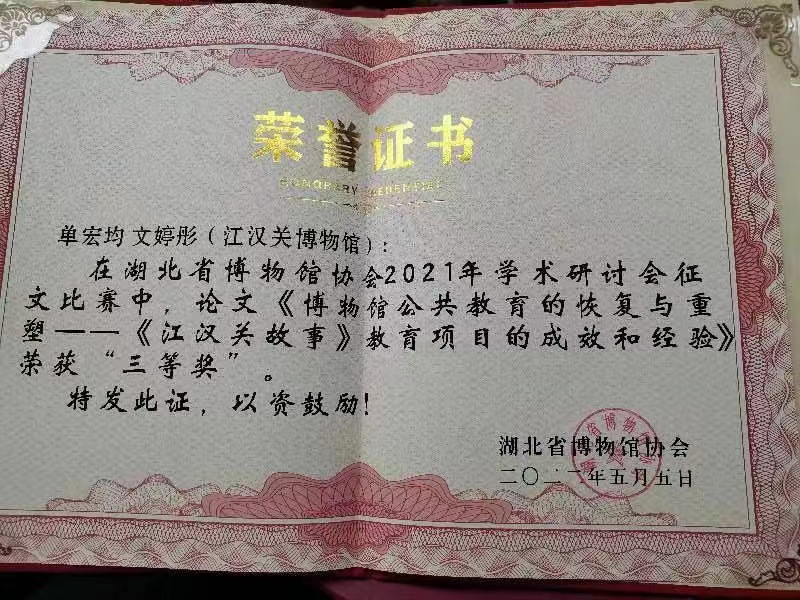 荣誉证书
HONORARY CREDENTIAL
单宏均 文婷彤（江汉关博物馆）：
在湖北省博物馆协会2021年学术研讨会征
文比赛中，论文《博物馆公共教育的恢复与重
塑——《江汉关故事》教育项目的成效和经验》
荣获“三等奖”。
特发此证，以资鼓励！
湖北省博物馆协会
二〇二二年五月五日